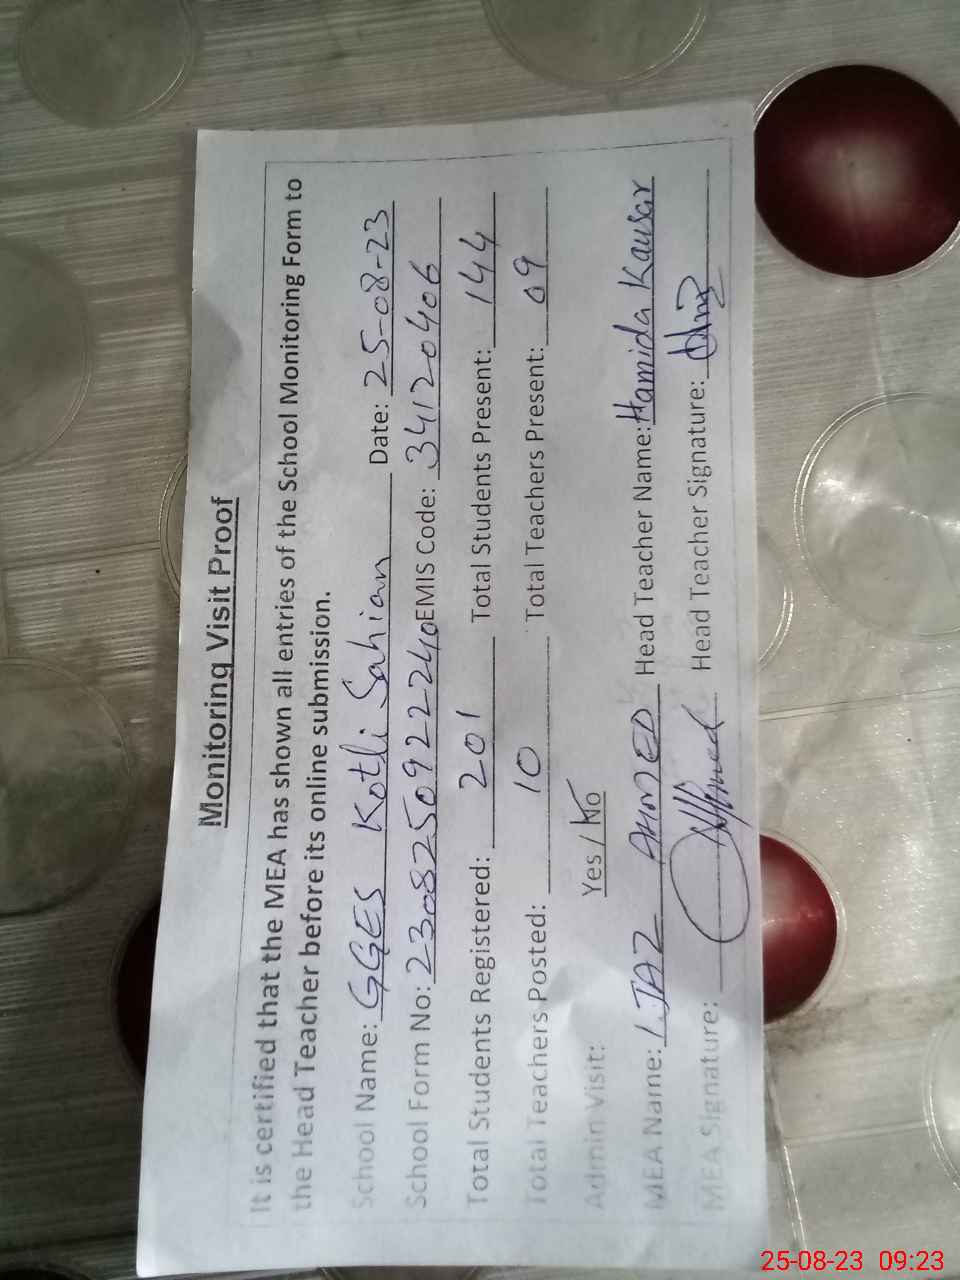 Monitoring Visit Proof
It is certified that the MEA has shown all entries of the School Monitoring Form to
the Head Teacher before its online submission.
School Name: GGES Kotli Sahian Date: 25-08-23
School Form No: 2308250922240 EMIS Code: 34120406
Total Students Registered: 201 Total Students Present: 144
Total Teachers Posted: 10 Total Teachers Present: 09
Admin Visit: Yes / No
MEA Name: IJAZ AHMED Head Teacher Name: Hamida Kausar
MEA Signature: Head Teacher Signature:
25-08-23 09:23